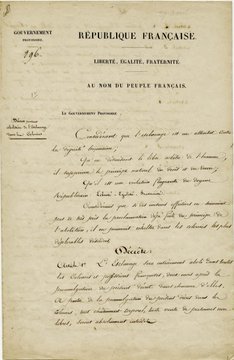 GOUVERNEMENT
PROVISOIRE.
RÉPUBLIQUE FRANÇAISE.
296.
LIBERTÉ, ÉGALITÉ, FRATERNITÉ.
AU NOM DU PEUPLE FRANÇAIS.
LE GOUVERNEMENT PROVISOIRE,
Considérant que l'esclavage est un attentat contre
la dignité humaine;
Qu'en détruisant le libre arbitre de l'homme,
il supprime le principe naturel du droit et du devoir;
Qu'il est une violation flagrante du dogme
Républicain: Liberté, Égalité, Fraternité.
Considérant que si des mesures effectives ne suivaient
pas de très près la proclamation déjà faite du principe de
l'abolition, il en pourrait résulter dans les colonies les plus
déplorables désordres,
Décrète:
Art. 1er. L'esclavage sera entièrement aboli dans toutes
les colonies et possessions françaises, deux mois après la
promulgation du présent décret dans chacune d'elles.
A partir de la promulgation du présent décret dans les
colonies, tout châtiment corporel, toute vente de personnes non
libres, seront absolument interdits.